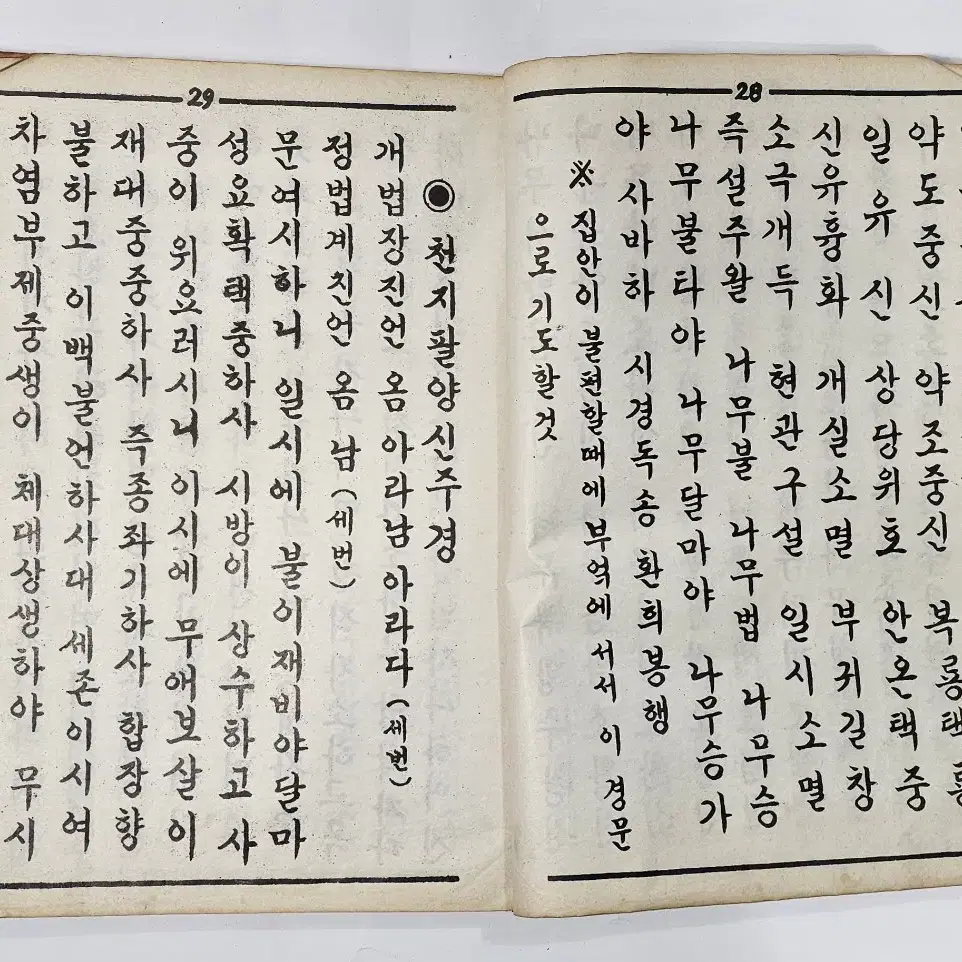 28
약도중신 약조중신 복룡택
일유 신 상당위호 안온택중
신유흉화 개실소멸 부귀길창
소극개득 현관구설 일시소멸
즉설주왈 나무불 나무법 나무승
나무불타야 나무달마야 나무승가
야 사바하 시경독송 환희봉행
※ 집안이 불편할때에부엌에 서서 이 경문
으로기도할것
29
◉ 천지팔양신주경
개법장진언 옴 아라남아라다(세번)
정법계진언 옴 남(세번)
문여시하니 일시에 불이재비야달마
성요확택중하사 시방이 상수하고 사
중이 위요러시니 이시에 무애보살이
재대중중하사 즉종좌기하사 합장향
불하고 이백불언하사대 세존이시여
차염부제중생이 체대상생하야 무시